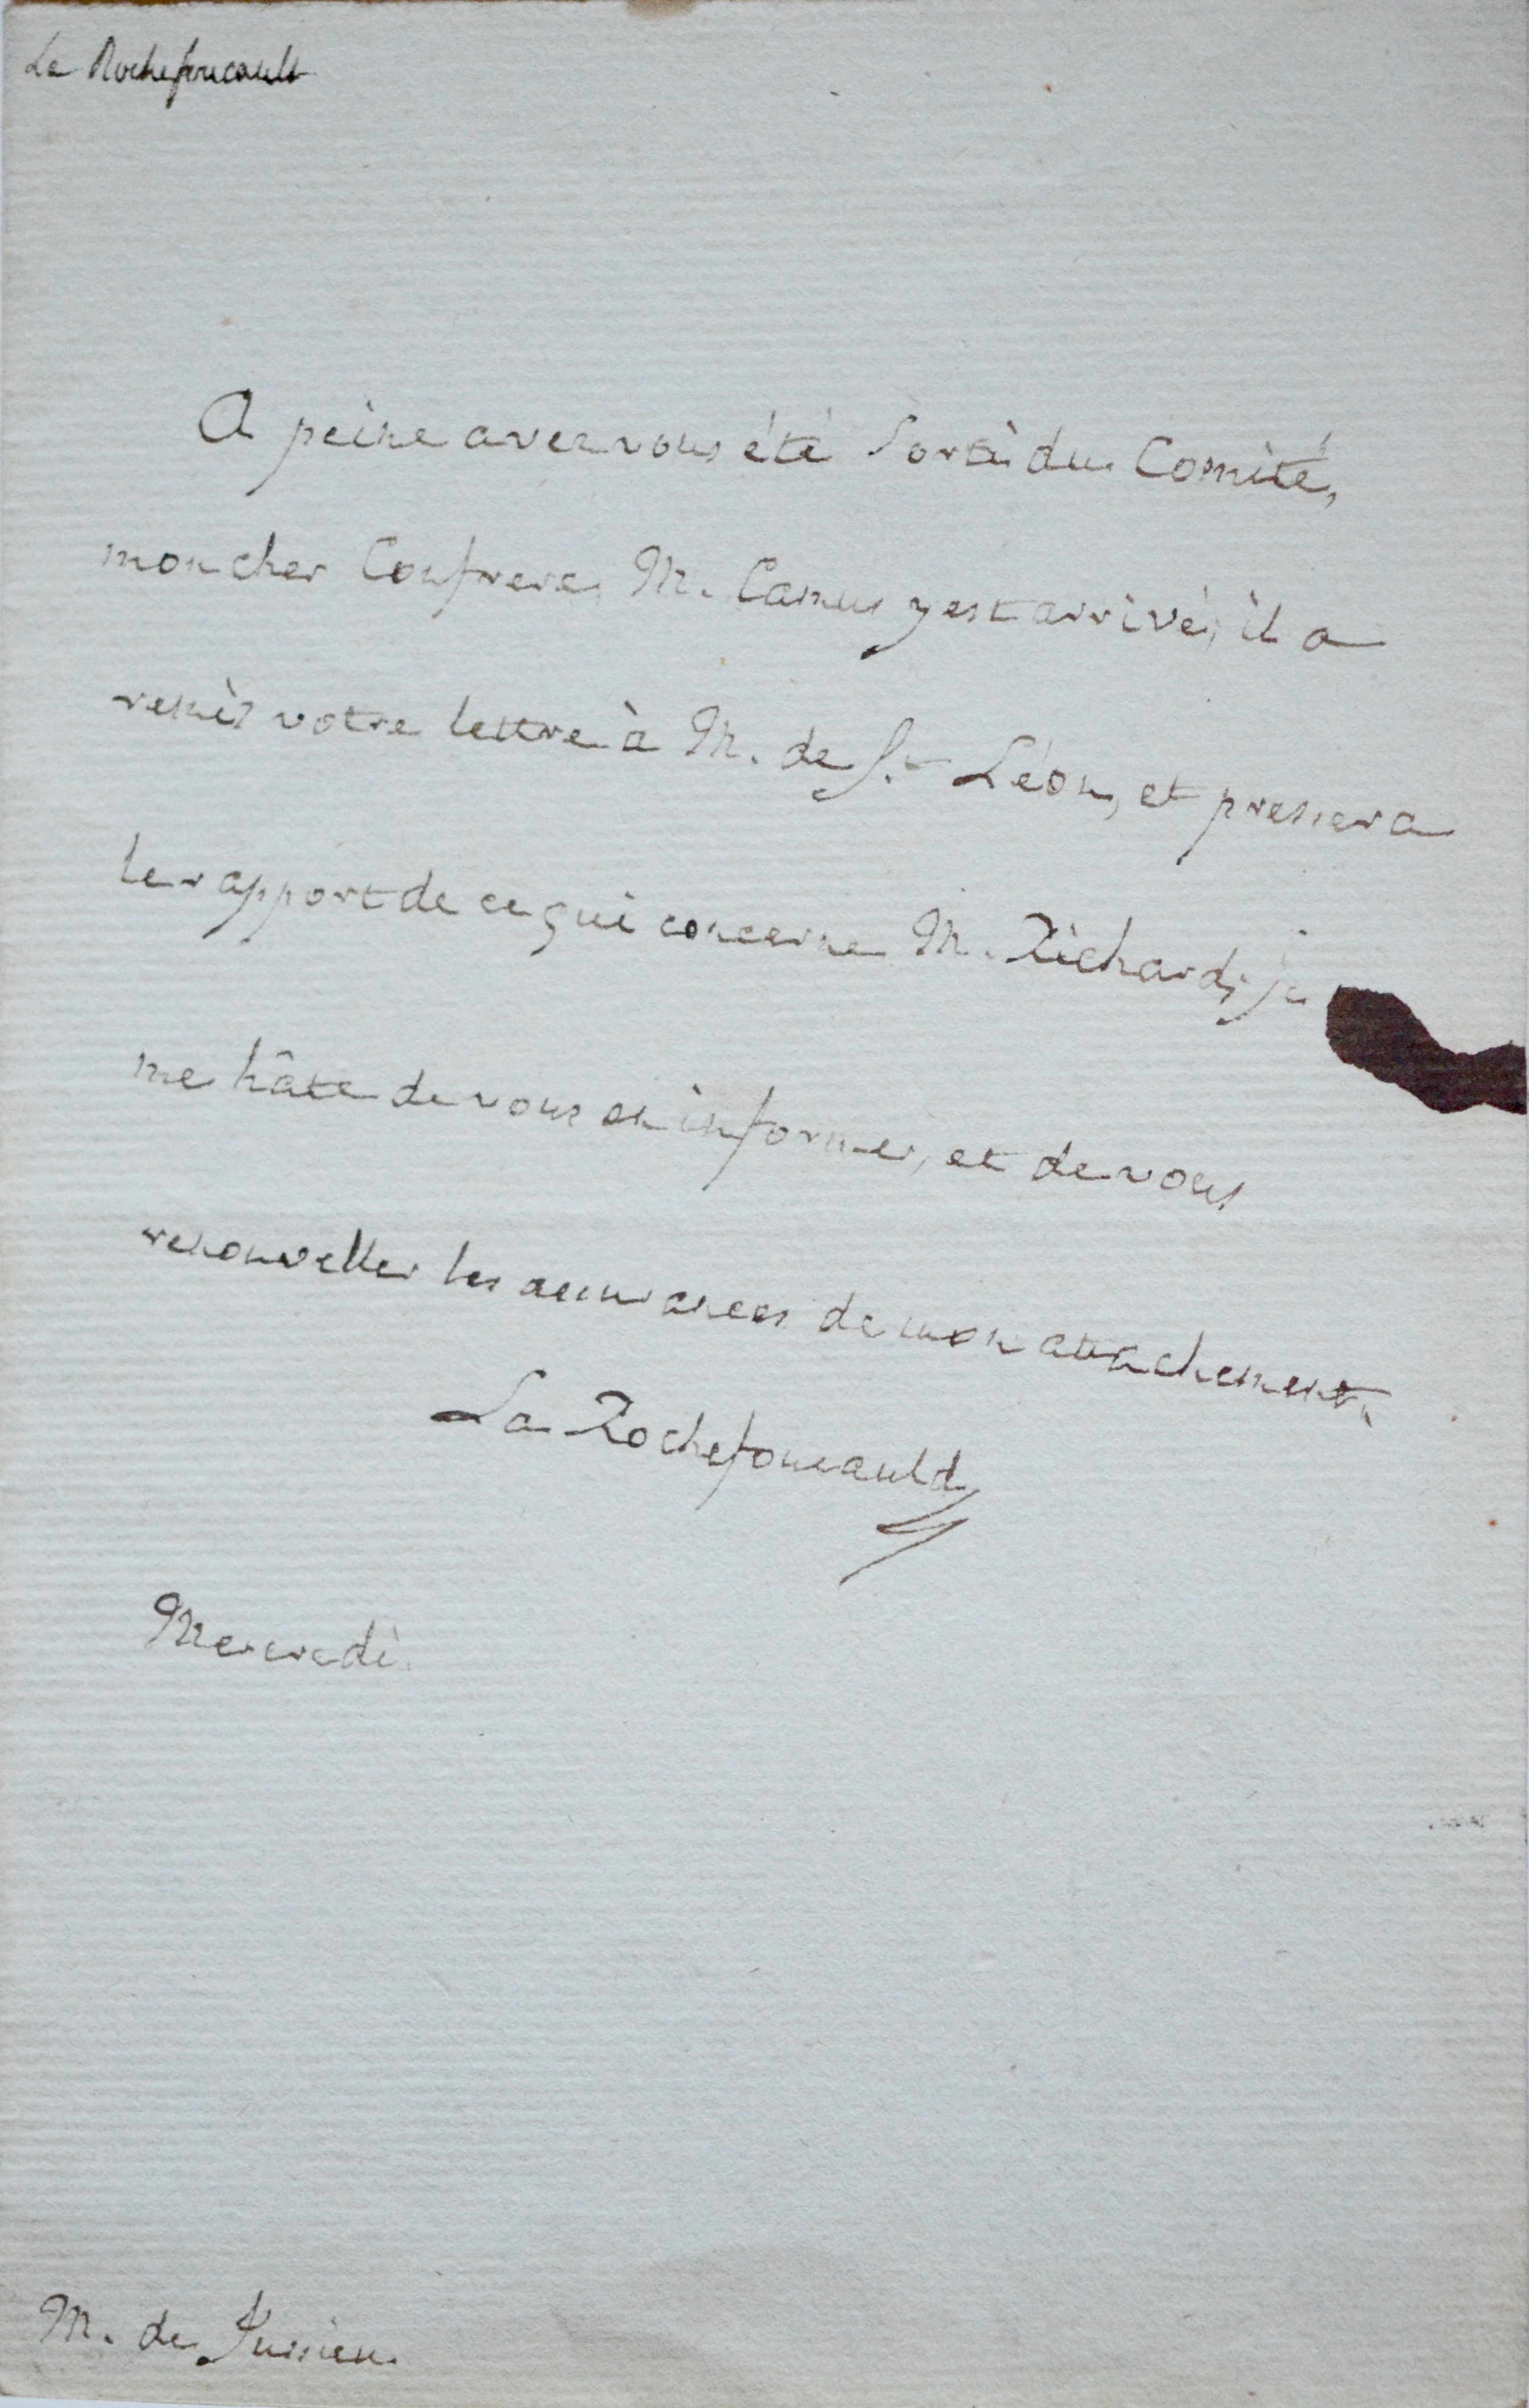 La Rochefoucault
A peine avez vous été sorti du Comité,
mon cher Confrere, M. Camus y est arrivé; il a
remis votre lettre à M. de St Léon, et pressera
le rapport de ce qui concerne M. Richard; je
me hâte de vous en informer, et de vous
renouveller les assurances de mon attachement.
La Rochefoucauld
Mercredi.
M. de Jussieu.